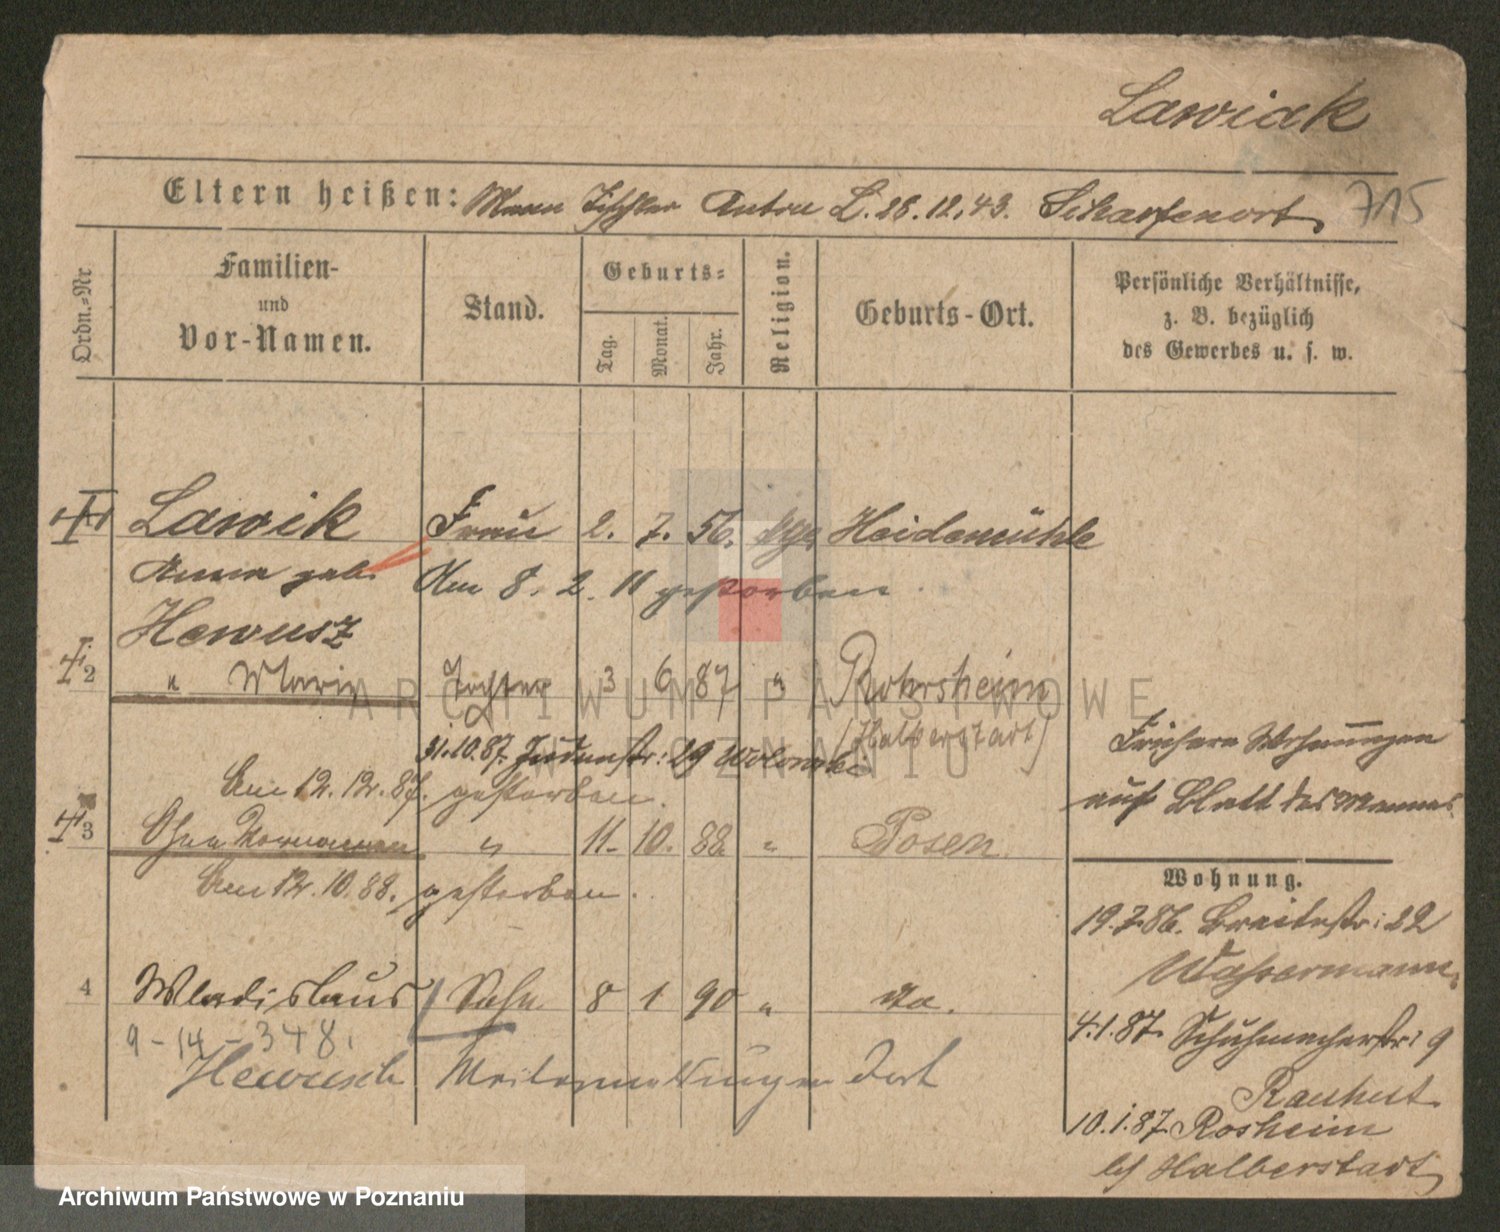 Lawiak
Eltern heißen: Mann Tischler Anton L. 28.12.43. Scharfenort 715
Ordn.=Nr
Familien-
und
Vor-Namen.
Stand.
Geburts=
Tag.
Monat.
Jahr.
Religion.
Geburts-Ort.
Persönliche Verhältnisse,
z. B. bezüglich
des Gewerbes u. s. w.
Lawik Frau 2. 7. 56. Heidemühle
Anna geb. Am 8. 2. 11 gestorben
Hewusz
2 " Maria Tochter 3 6 87 " Rohrsheim
(Halberstart)
31.10.87. Judenstr: 29 Wolonski
Am 12.12.87. gestorben.
3 Ohne Vornamen " 11. 10. 88 " Posen
Am 12.10.88. gestorben.
4 Wladislaus Sohn 8 1 90 " do.
9-14-348.
Hewusch Weitere Meldungen dort
Frühere Wohnungen
auf Blatt des Mannes
Wohnung.
19.7.86. Breitestr: 22
Wassermann.
4.1.87. Schuhmacherstr: 9
Rauhut
10.1.87. Rosheim
b/ Halberstadt
ARCHIWUM PAŃSTWOWE
W POZNANIU
Archiwum Państwowe w Poznaniu